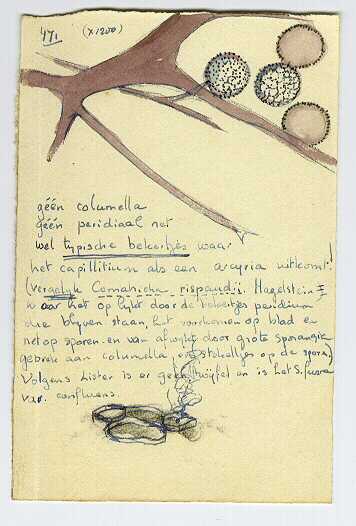 471 (x1200)
géén columella
géén peridiaal net
wel typische bekertjes waar
het capillitium als een arcyria uitkomt!
(vergelijk Comatricha rispaudii Hagelstein
waar het op lijkt door de bekertjes peridium
die blijven staan, het voorkomen op blad en
net op sporen en van afwijkt door grote sporangia
gebrek aan columella, en stekeltjes op de sporen)
Volgens Lister is er geen twijfel en is het S. fusca
var. confluens